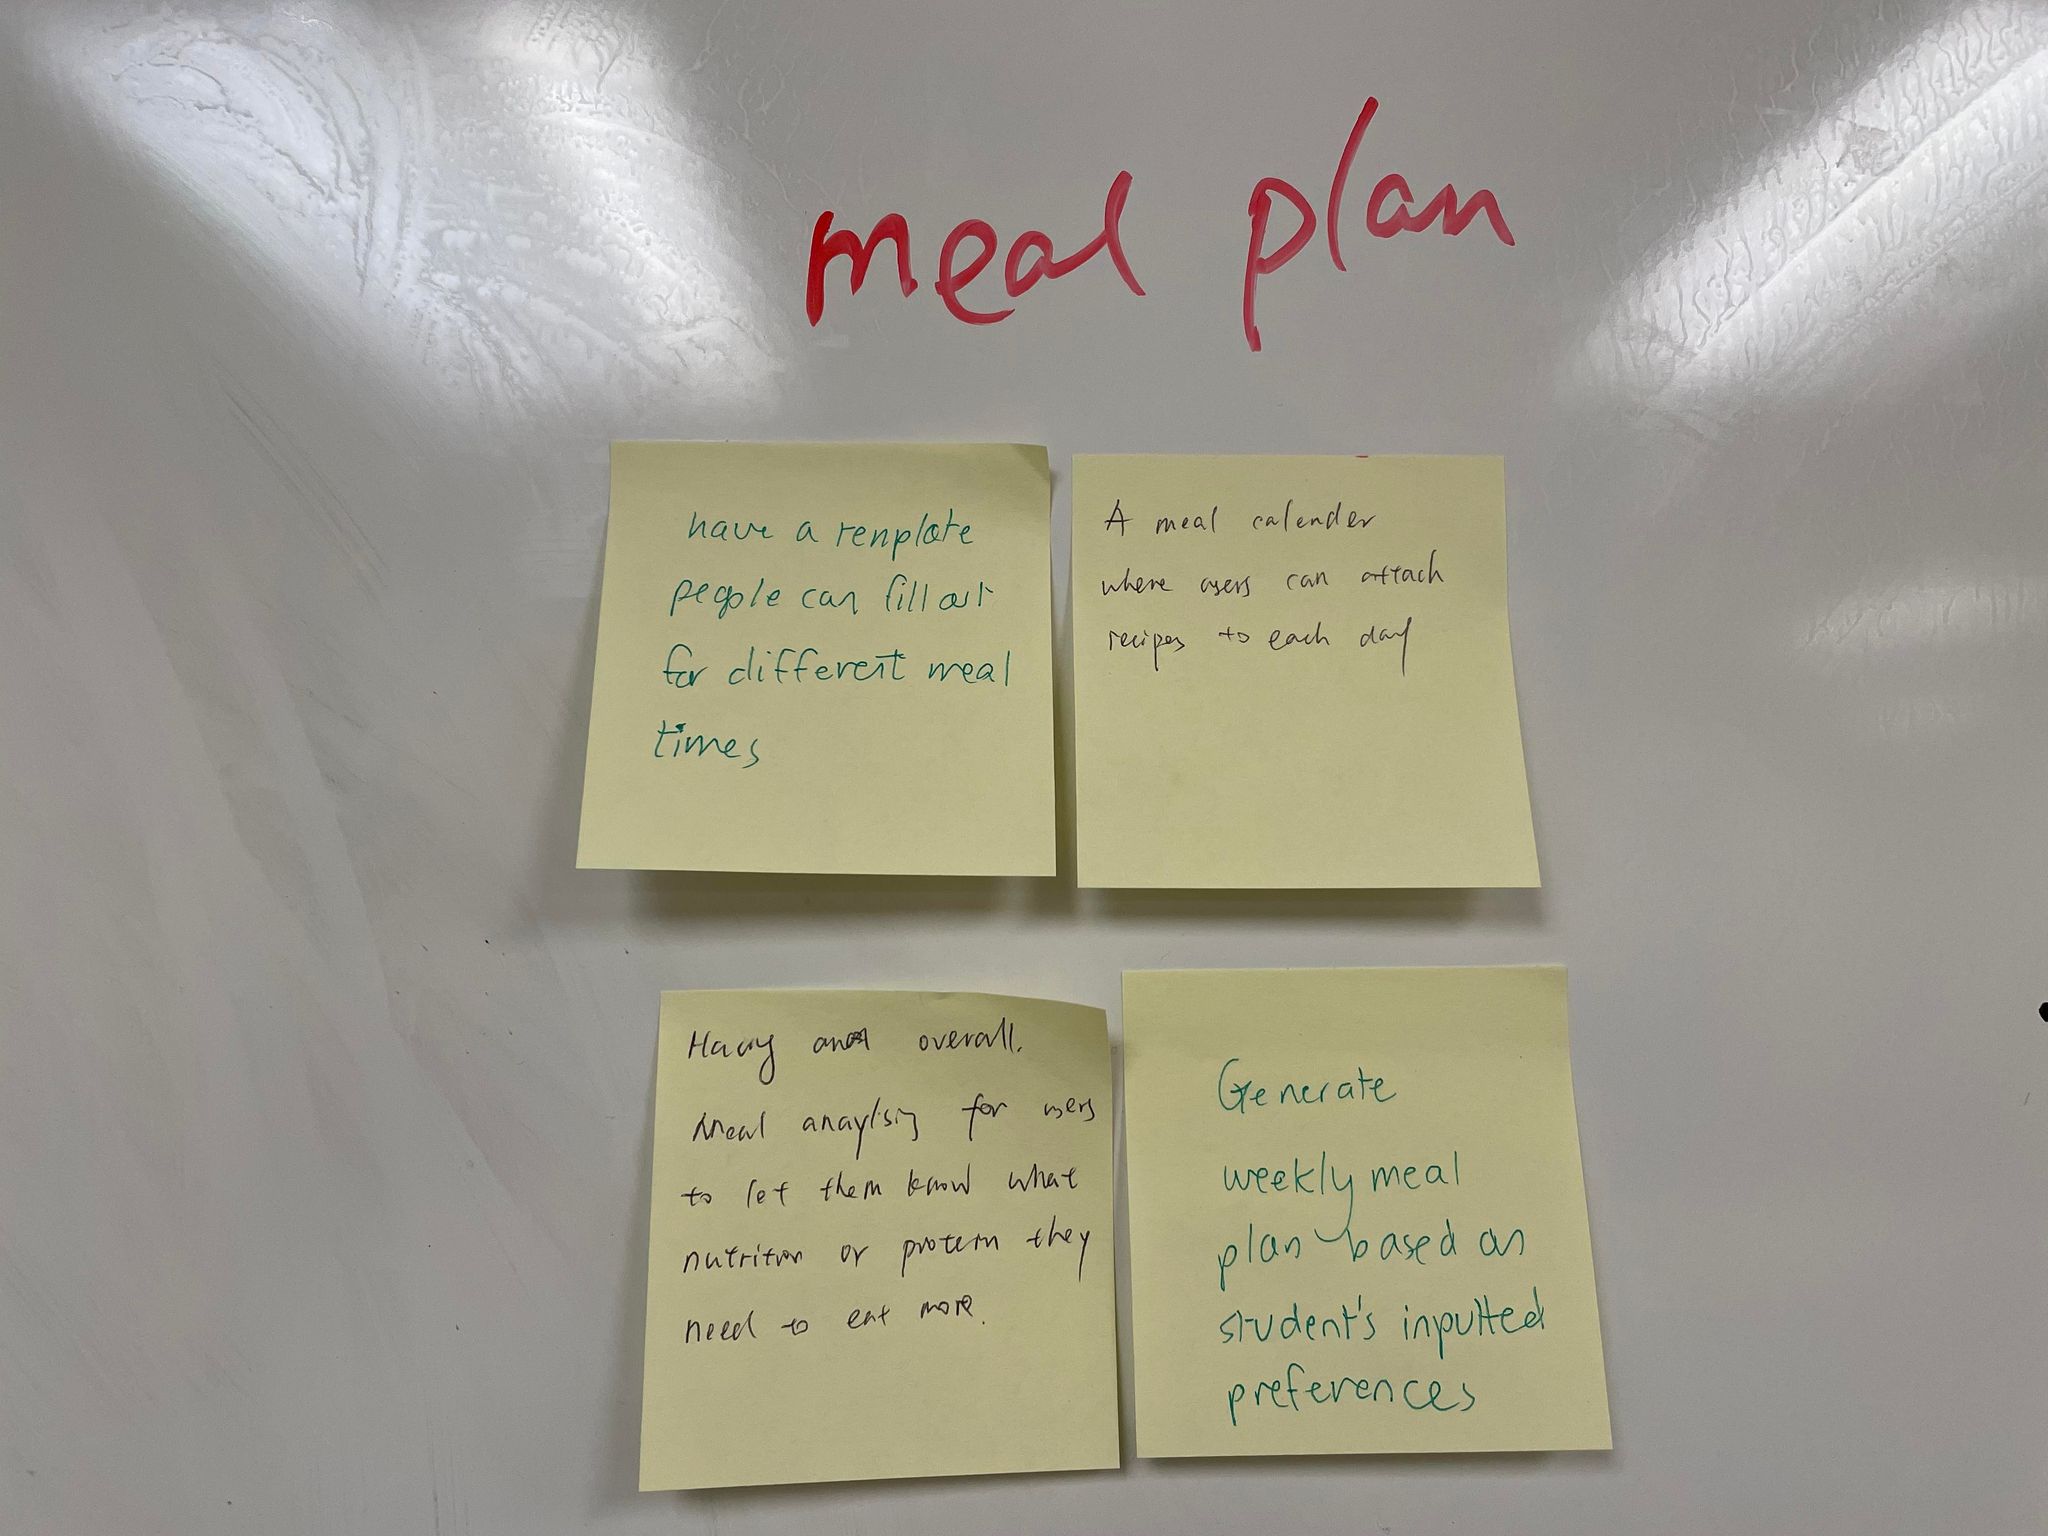 meal plan
have a template
people can fill out
for different meal
times
A meal calender
where users can attach
recipes to each day
Having overall.
meal anaylsis for users
to let them know what
nutrition or protein they
need to eat more.
Generate
weekly meal
plan based on
student's inputted
preferences